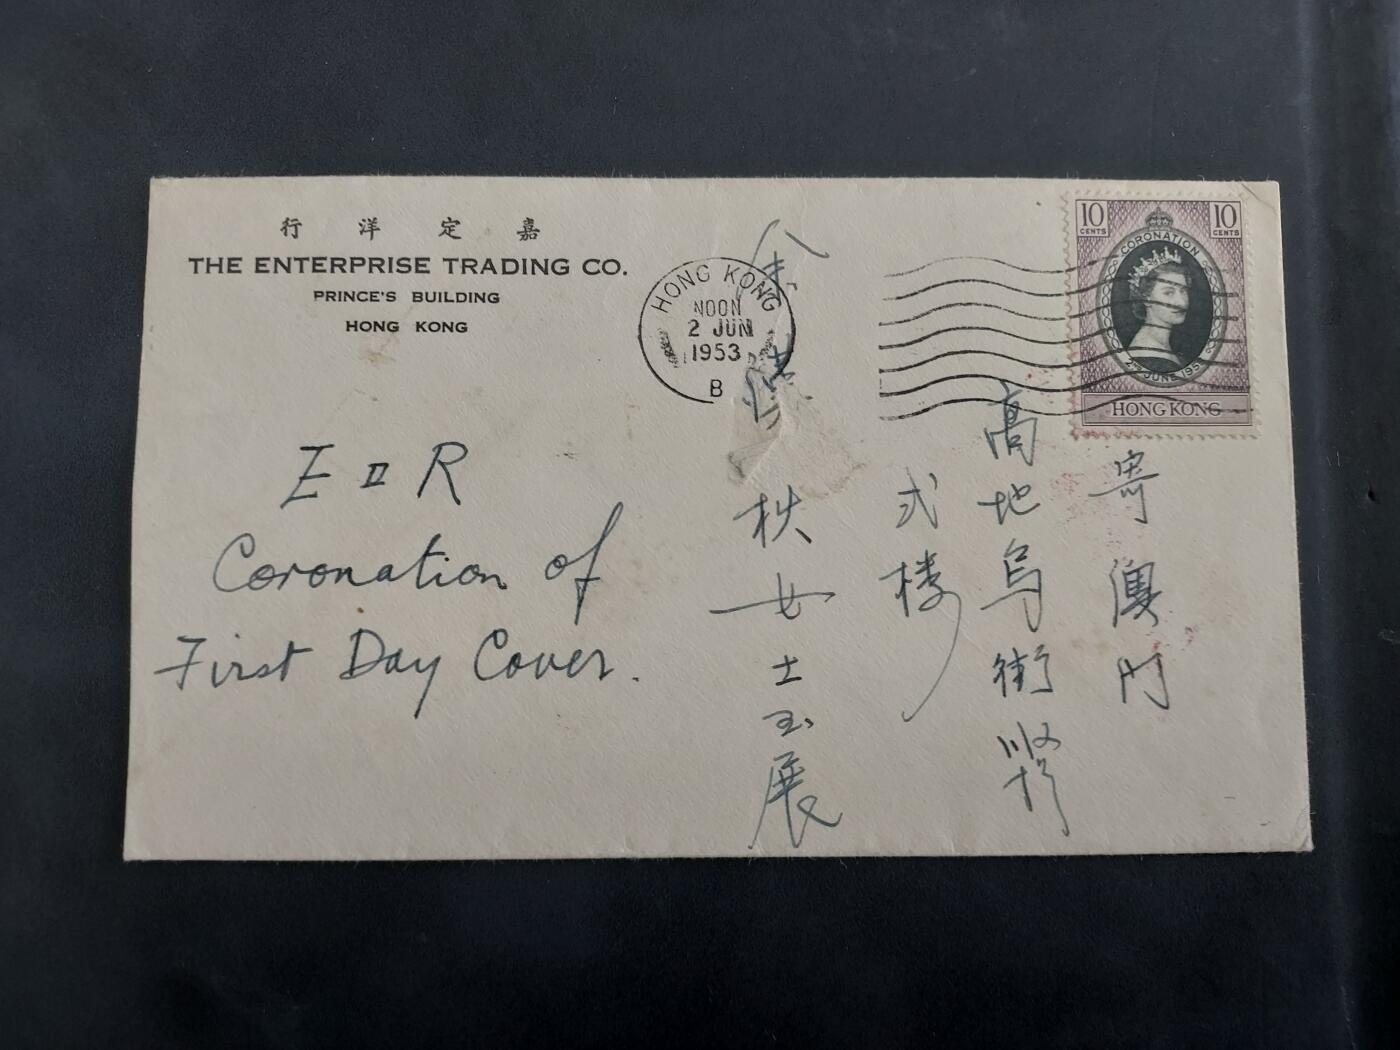 行 洋 定 嘉
THE ENTERPRISE TRADING CO.
PRINCE'S BUILDING
HONG KONG
HONG KONG
NOON
2 JUN
1953
B
10 CENTS
10 CENTS
CORONATION
2ND JUNE 1953
HONG KONG
E II R
Coronation of
First Day Cover.
寄澳门
高地乌街
式楼
女士玉展